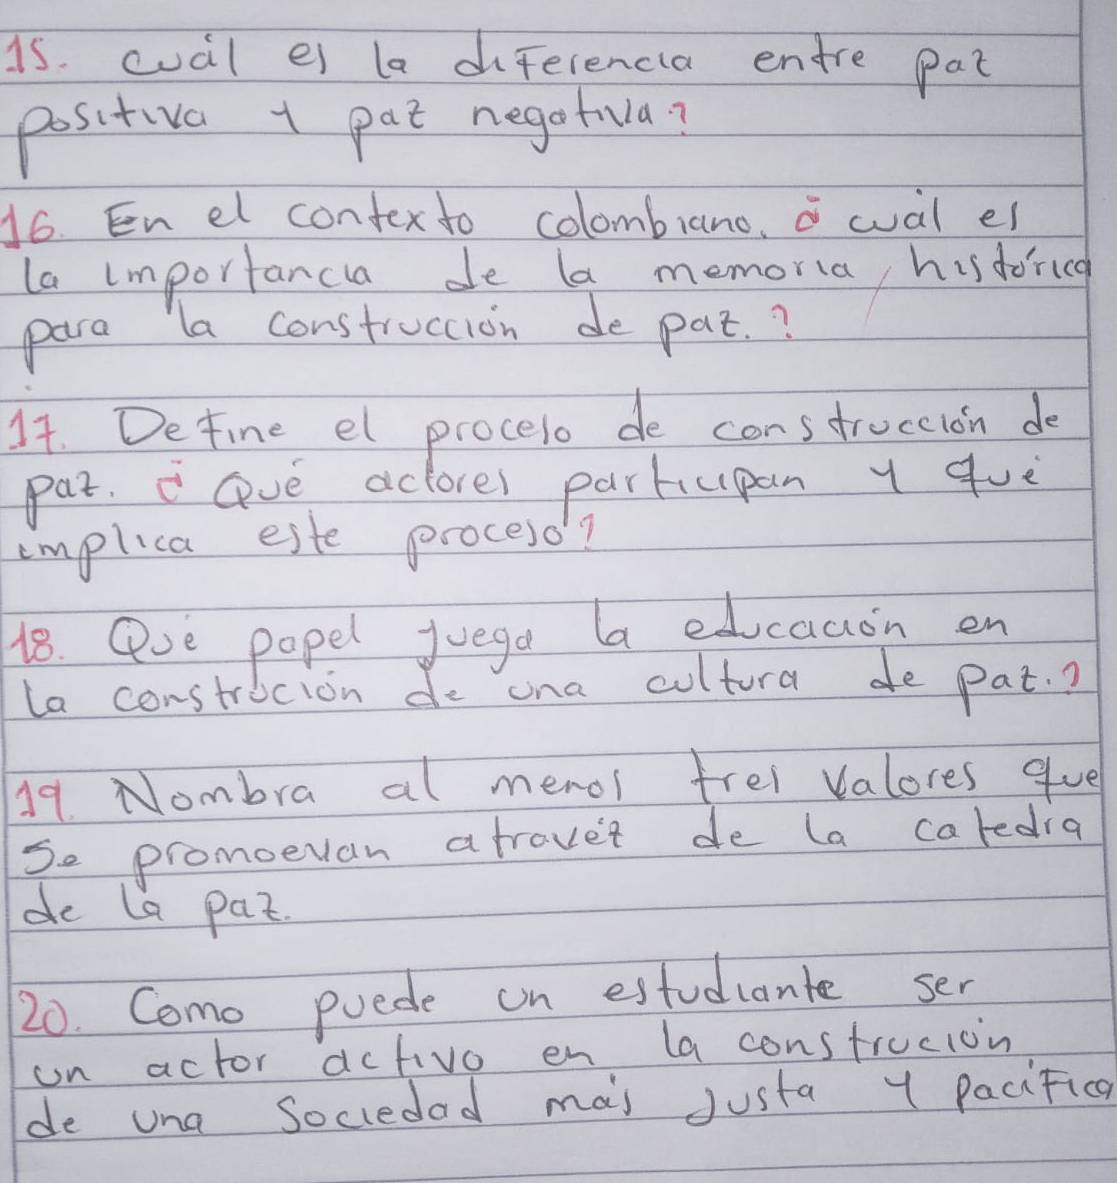 15. cuál es la diferencia entre paz
positiva y paz negativa?
16. En el contexto colombiano. ¿ cuál es
la importancia de la memoria histórica
para la construcción de paz.?
17. Define el proceso de construcción de
paz. ¿ Qué actores participan y qué
implica este proceso?
18. Qué papel juega la educación en
la construción de una cultura de paz.?
19. Nombra al menos tres valores que
se promoevan a travéz de la catedra
de la paz.
20. Como puede un estudiante ser
un actor activo en la construción
de una sociedad más justa y pacifica